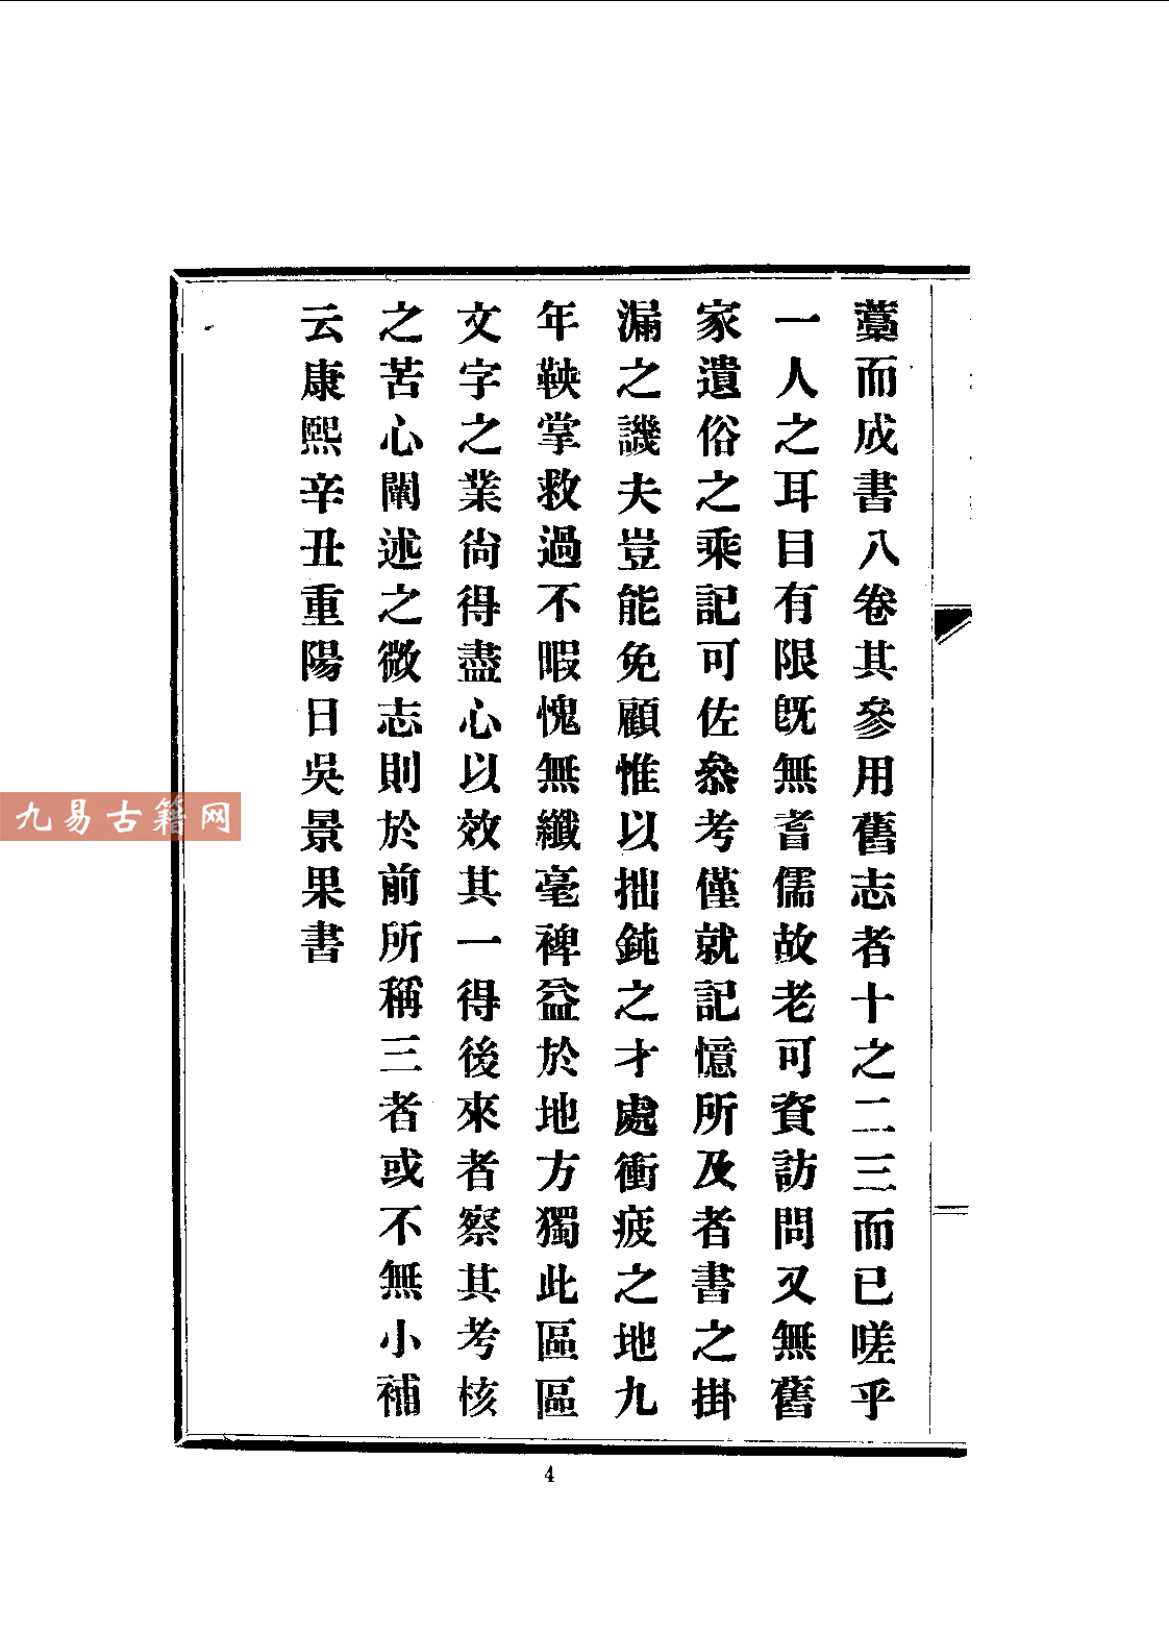 藁而成書八卷其參用舊志者十之二三而已嗟乎
一人之耳目有限旣無耆儒故老可資訪問又無舊
家遺俗之乘記可佐叅考僅就記憶所及者書之掛
漏之譏夫豈能免顧惟以拙鈍之才處衝疲之地九
年鞅掌救過不暇愧無纖毫裨益於地方獨此區區
文字之業尙得盡心以效其一得後來者察其考核
之苦心闡述之微志則於前所稱三者或不無小補
云康熙辛丑重陽日吳景果書
九易古籍网
4